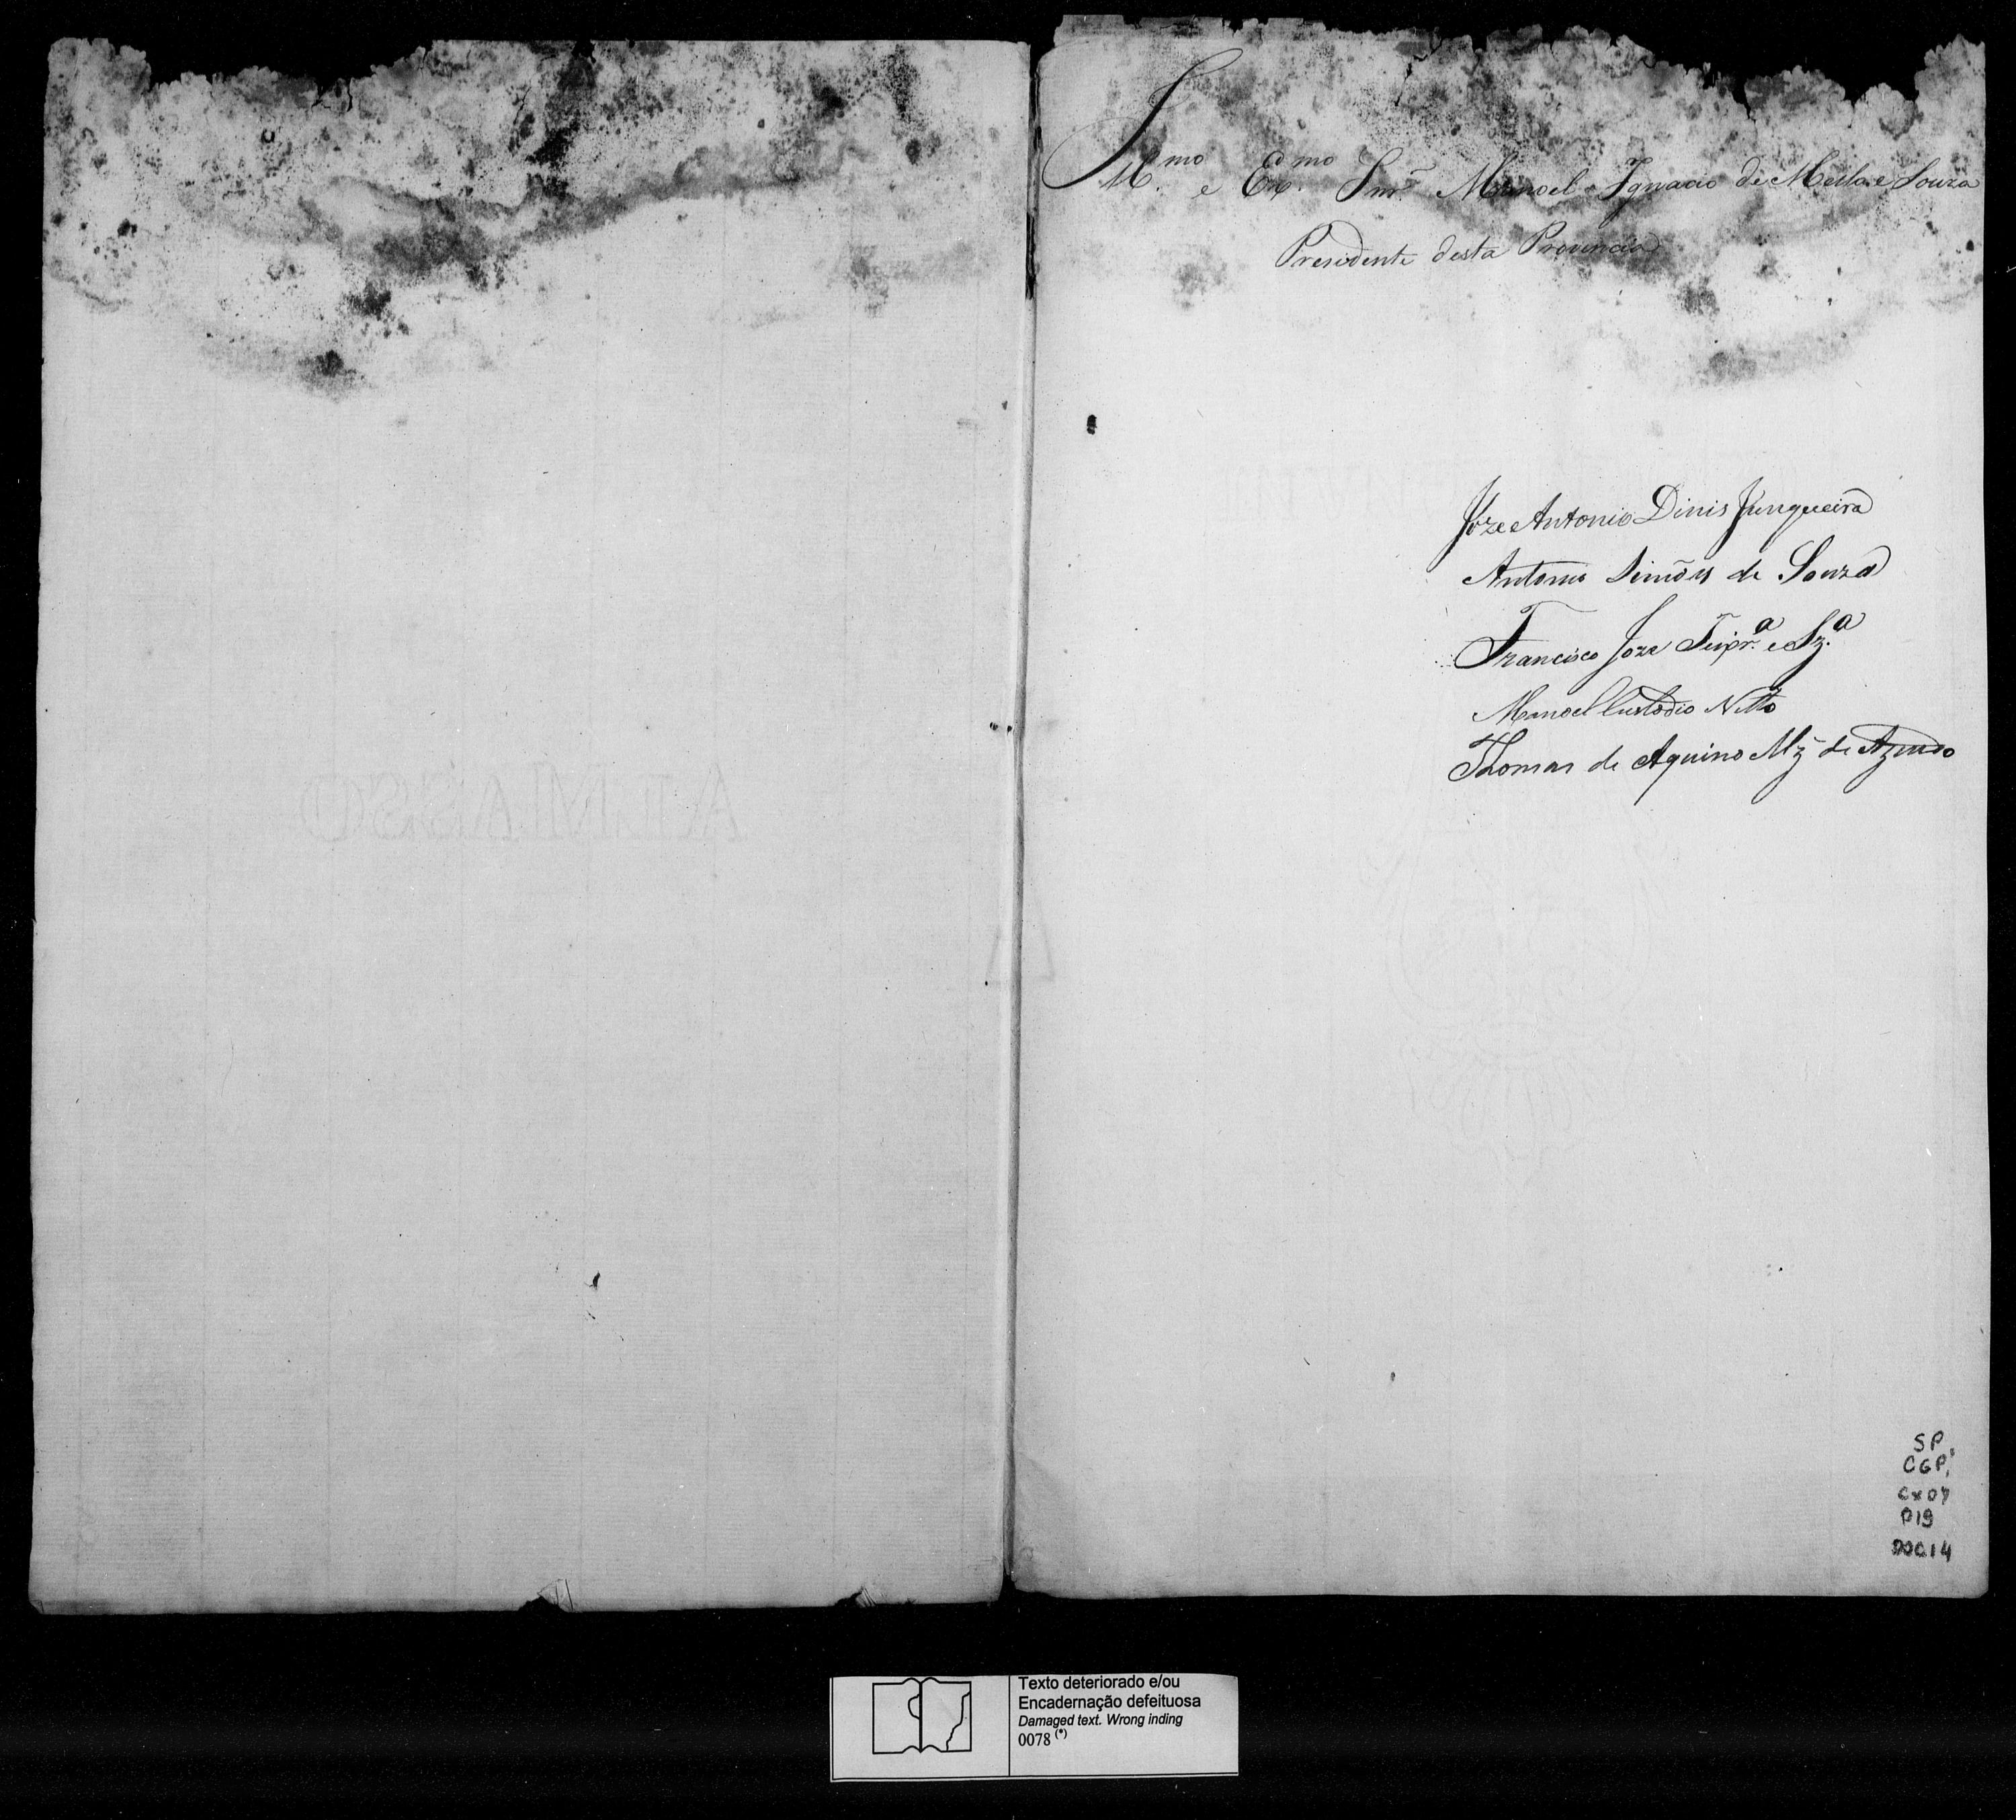 Ill.mo e Ex.mo Snr. Manoel Ignacio de Mello e Souza
Presidente desta Provincia
Joze Antonio Dinis Junqueira
Antonio Simões de Souza
Francisco Joze
Manoel Custodio Netto
Thomas de Aquino Mz de Azevedo
SP.
CGP.
Cx 07
P19
DOC.14
ALMASSO
Texto deteriorado e/ou
Encadernação defeituosa
Damaged text. Wrong inding
0078 (*)